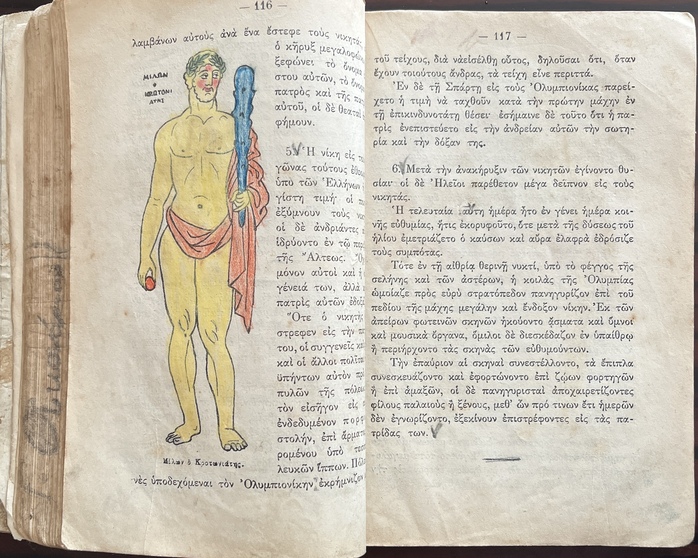 — 116 —
λαμβάνων αὐτοὺς ἀνὰ ἕνα ἔστεφε τοὺς νικητάς,
ὁ κῆρυξ μεγαλοφώνως
ξεφώνει τὸ ὄνομα
στου αὐτῶν, τὸ ὄνομα
πατρὸς καὶ τῆς
αὐτοῦ, οἱ δὲ θεαταὶ
φήμουν.
5. Ἡ νίκη εἰς
γῶνας τούτους
ὑπὸ τῶν Ἑλλήνων
γίστη τιμή· οἱ
ἐξύμνουν τοὺς
οἱ δὲ ἀνδριάντες
ἱδρύοντο ἐν τῷ
τῆς Ἄλτεως.
μόνον αὐτοὶ καὶ ἡ
γένειά των, ἀλλὰ
πατρὶς αὐτῶν
Ὅτε ὁ νικητὴς
στρεφεν εἰς τὴν
του, οἱ συγγενεῖς
καὶ οἱ ἄλλοι πολῖται
ὑπήντων αὐτὸν
πυλῶν τῆς πόλεως
τὸν εἰσῆγον εἰς
ἐνδεδυμένον
στολήν, ἐπὶ
ρομένου ὑπὸ
λευκῶν ἵππων.
νὲς ὑποδεχόμεναι τὸν Ὀλυμπιονίκην ἐκρήμνιζον
ΜΙΛΩΝ
Ο
ΚΡΩΤΟΝΙ
ΑΤΗΣ
Μίλων ὁ Κροτωνιάτης.
— 117 —
τοῦ τείχους, διὰ νὰ εἰσέλθῃ οὗτος, δηλοῦσαι ὅτι, ὅταν
ἔχουν τοιούτους ἄνδρας, τὰ τείχη εἶνε περιττά.
Ἐν δὲ τῇ Σπάρτῃ εἰς τοὺς Ὀλυμπιονίκας παρεί-
χετο ἡ τιμὴ νὰ ταχθοῦν κατὰ τὴν πρώτην μάχην ἐν
τῇ ἐπικινδυνοτάτῃ θέσει· ἐσήμαινε δὲ τοῦτο ὅτι ἡ πα-
τρὶς ἐνεπιστεύετο εἰς τὴν ἀνδρείαν αὐτῶν τὴν σωτη-
ρίαν καὶ τὴν δόξαν της.
6. Μετὰ τὴν ἀνακήρυξιν τῶν νικητῶν ἐγίνοντο θυ-
σίαι· οἱ δὲ Ἠλεῖοι παρέθετον μέγα δεῖπνον εἰς τοὺς
νικητάς.
Ἡ τελευταία αὕτη ἡμέρα ἦτο ἐν γένει ἡμέρα κοι-
νῆς εὐθυμίας, ἥτις ἐκορυφοῦτο, ὅτε μετὰ τῆς δύσεως τοῦ
ἡλίου ἐμετριάζετο ὁ καύσων καὶ αὔρα ἐλαφρὰ ἐδρόσιζε
τοὺς συμπότας.
Τότε ἐν τῇ αἰθρίᾳ θερινῇ νυκτί, ὑπὸ τὸ φέγγος τῆς
σελήνης καὶ τῶν ἀστέρων, ἡ κοιλὰς τῆς Ὀλυμπίας
ὡμοίαζε πρὸς εὐρὺ στρατόπεδον πανηγυρίζον ἐπὶ τοῦ
πεδίου τῆς μάχης μεγάλην καὶ ἔνδοξον νίκην. Ἐκ τῶν
ἀπείρων φωτεινῶν σκηνῶν ἠκούοντο ᾄσματα καὶ ὕμνοι
καὶ μουσικὰ ὄργανα, ὅμιλοι δὲ διεσκέδαζον ἐν ὑπαίθρῳ
ἢ περιήρχοντο τὰς σκηνὰς τῶν εὐθυμούντων.
Τὴν ἐπαύριον αἱ σκηναὶ συνεστέλλοντο, τὰ ἔπιπλα
συνεσκευάζοντο καὶ ἐφορτώνοντο ἐπὶ ζῴων φορτηγῶν
ἢ ἐπὶ ἁμαξῶν, οἱ δὲ πανηγυρισταὶ ἀποχαιρετίζοντες
φίλους παλαιοὺς ἢ ξένους, μεθ' ὧν πρό τινων ἔτι ἡμερῶν
δὲν ἐγνωρίζοντο, ἐξεκίνουν ἐπιστρέφοντες εἰς τὰς πα-
τρίδας των.